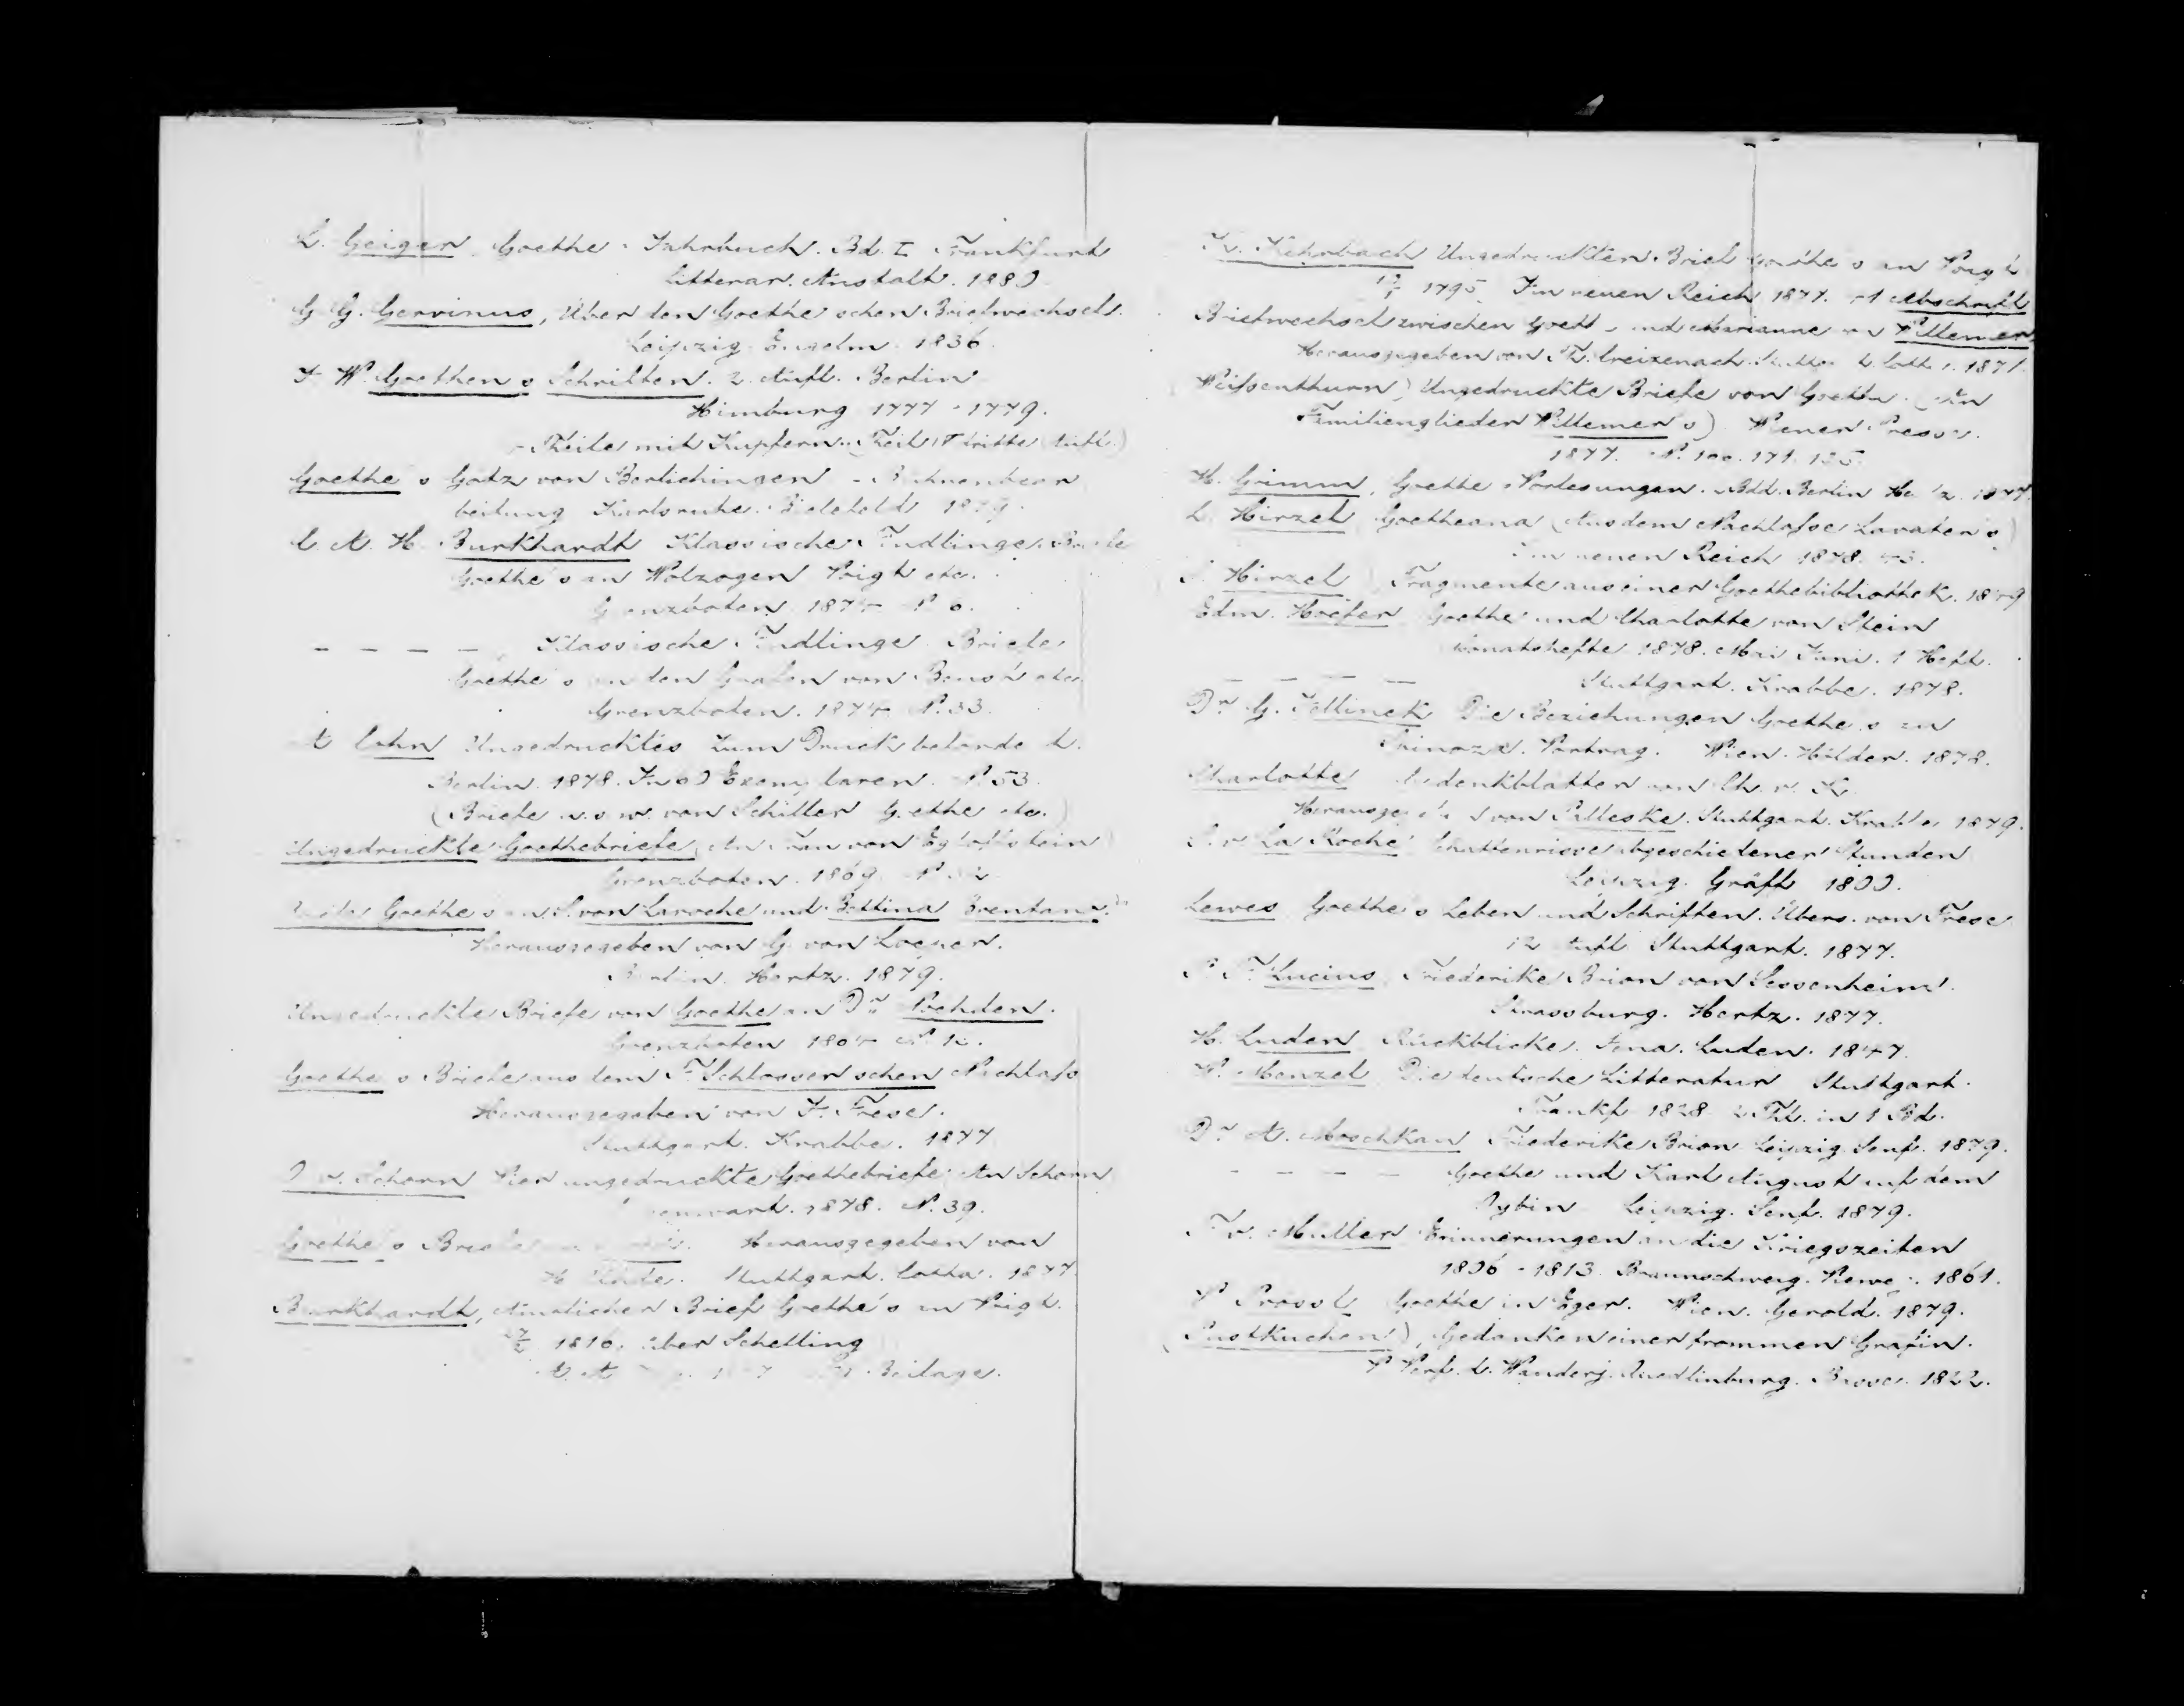 L. Geiger Goethe-Jahrbuch. Bd. I Frankfurt
Litterar. Anstalt. 1880
G. G. Gervinus, Über den Goethe'schen Briefwechsel.
Leipzig Engelm. 1836.
J. W. Goethens Schriften. 2. Aufl. Berlin
Himburg 1777-1779.
Theile mit Kupfern. (Theil dritte Aufl.)
Goethe's Götz von Berlichingen Bühnenbear
beitung Karlsruhe. Bielefeld 1879.
C. A. H. Burkhardt Klassische Findlinge. Briefe
Goethe's an Wolzogen Voigt etc.
Grenzboten 1874 N. 6.
— — — — Klassische Findlinge Briefe
Goethe's an den Grafen von Beust etc.
Grenzboten. 1874 N. 33.
A. Cohn Ungedrucktes zum Druck beförde
Berlin 1878. Exemplaren. N. 53.
(Briefe u.s.w. von Schiller Goethe etc.)
Ungedruckte Goethebriefe. (An Frau von Egloffstein)
Grenzboten. 1869
Briefe Goethe's an S. von Laroche und Bettina Brentano.
Herausgegeben von G. von Loeper.
Berlin. Hertz. 1879.
Ungedruckte Briefe von Goethe an Dr. Noehden.
Grenzboten
Goethe's Briefe aus dem F. Schlosser'schen Nachlaſs
Herausgegeben von J. Frese.
Stuttgart. Krabbe. 1877
O. v. Schorn Vier ungedruckte Goethebriefe An Schorn
1878. N. 39.
Goethe's Briefe Herausgegeben von
H. Uhde. Stuttgart. Cotta. 1877.
Burkhardt, Amtlicher Brief Goethe's an Voigt.
1816. über Schelling
Beilage.
K. Kehrbach Ungedruckter Brief Goethe's an Voigt
1795. Im neuen Reich 1877. Abschrift
Briefwechsel zwischen Goethe und Marianne von Willemer
Herausgegeben von Th. Creizenach. Stuttg. Cotta.
Weiſsenthurn) Ungedruckte Briefe von Goethe. (An
Familienglieder Willemer's) Wiener Presse.
1877. N.
H. Grimm, Goethe Vorlesungen. 2 Bdd. Berlin Hertz. 1877.
L. Hirzel Goetheana (Aus dem Nachlaſse Lavater's)
Im neuen Reich 1878.
S. Hirzel) Fragmente aus einer Goethebibliothek.
Edm. Hoefer Goethe und Charlotte von Stein
Monatshefte 1878. Mai Juni. 1 Heft.
— — — — Stuttgart. Krabbe. 1878.
Dr. G. Jellinek Die Beziehungen Goethe's zu
Spinoza. Vortrag. Wien. Hölder. 1878.
Charlotte Gedenkblätter von Ch. v. K.
Herausgegeben von Palleske. Stuttgart. Krabbe 1879.
S. v. La Roche Schattenrisse abgeschiedener Stunden
Leipzig. Gräff 1800.
Lewes Goethe's Leben und Schriften. Übers. von Frese
12 Aufl Stuttgart. 1877.
P. F. Lucius Friederike Brion von Sessenheim.
Strassburg. Hertz. 1877.
H. Luden Rückblicke. Jena. Luden. 1847.
W. Menzel Die deutsche Litteratur Stuttgart.
Frankf 1828 2 Thl. in 1 Bd.
Dr. A. Moschkau Friederike Brion Leipzig. Senf. 1879.
— — — — Goethe und Karl August auf dem
Oybin Leipzig. Senf. 1879.
F. v. Müller Erinnerungen an die Kriegszeiten
1806-1813. Braunschweig. Vieweg. 1861.
V. Prossl Goethe in Eger. Wien. Gerold. 1879.
(Pustkuchen), Gedanken einer frommen Gräfin.
V. Verf. d. Wanderj. Quedlinburg. Basse. 1822.